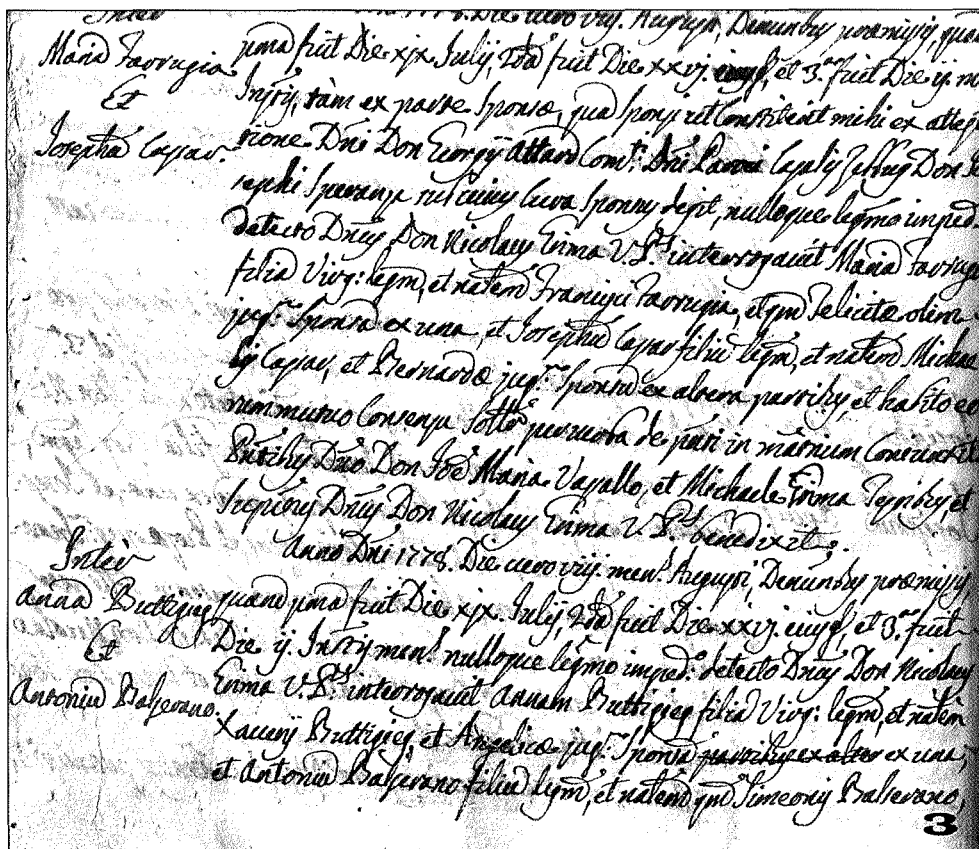 Inter
Maria Farrugia
Et
Josephū Cassar.
1778. Die vero viij. Augusti, Denuntiōs præmissis, quar
pma fuit Die xjx Julij, 2da fuit Die xxvj. eiusd, et 3.a fuit Die ij. m
Instis, tam ex parte Sponsæ, quā Sponsi ut Constitit mihi ex attes
tione Dni Don Georgij Attard Dni Casalis Zeffug Don
sephi Speranza sub cuius Cura Sponsus degit, nulloque legmo imped.
detecto Dnus Don Nicolaus Erima V.Ps interrogavit Maria Farrug
filia Virg: legm, et natem Francisci Farrugia, et qm Felicitæ olim
jug: Sponsa ex una, et Josephū Cassar filiū legm, et natem Michae
lis Cassar, et Bernardæ jug: Sponsū ex altera partibus, et habito eo
rum mutuo Consensu Solltr per verba de pnti in mārnium Coniunxit
Pntibus Dno Don Joe Maria Vassallo, et Michaele Erima Testibus, et
Dnus Don Nicolaus Erima V.Ps benedixit.
Inter
Anna Buttigieg
Et
Antoniū Balzerano.
Anno Dni 1778. Die vero viij. mens Augusti, Denuntbus præmissis,
quarū pma fuit Die xjx. Julij, 2da fuit Die xxvj. eiusd, et 3.a fuit
Die ij. Instis mens nulloque legmo imped. detecto Dnus Don Nicolaus
Erima V.Ps interrogavit Annam Buttigieg filia Virg: legm, et natem
Xaverij Buttigieg, et Angelicæ jug: Sponsa partibus ex alter ex una,
et Antoniū Balzerano filiū legm, et natem qm Simeonis Balzerano,
3